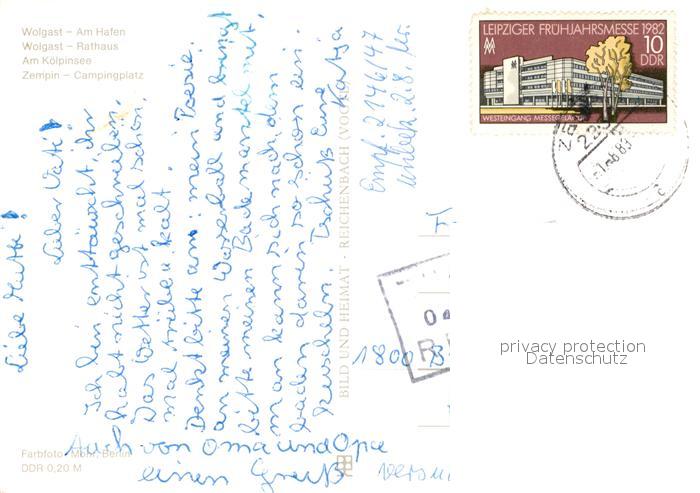 Wolgast – Am Hafen
Wolgast – Rathaus
Am Kölpinsee
Zempin – Campingplatz
Liebe Mutti!
Lieber Vati!
Ich bin enttäuscht, ihr
habt nicht geschrieben.
Das Wetter ist mal schön,
mal trübe u. kalt.
Denkt bitte an: mein Poesie.
an meinen Wasserball und bringt
bitte meinen Bademantel mit,
man kann sich nach dem
baden darin so schön ein-
kuscheln. Tschüß Eure
Katja
Auch von Oma und Opa
einen Gruß
Farbfoto Mohr, Berlin
DDR 0,20 M
BILD UND HEIMAT · REICHENBACH (VOGTL)
Empf. 2146/47
unbek. 2.8.
1800 B
LEIPZIGER FRÜHJAHRSMESSE 1982
10
DDR
WESTEINGANG MESSEGELÄNDE
privacy protection
Datenschutz